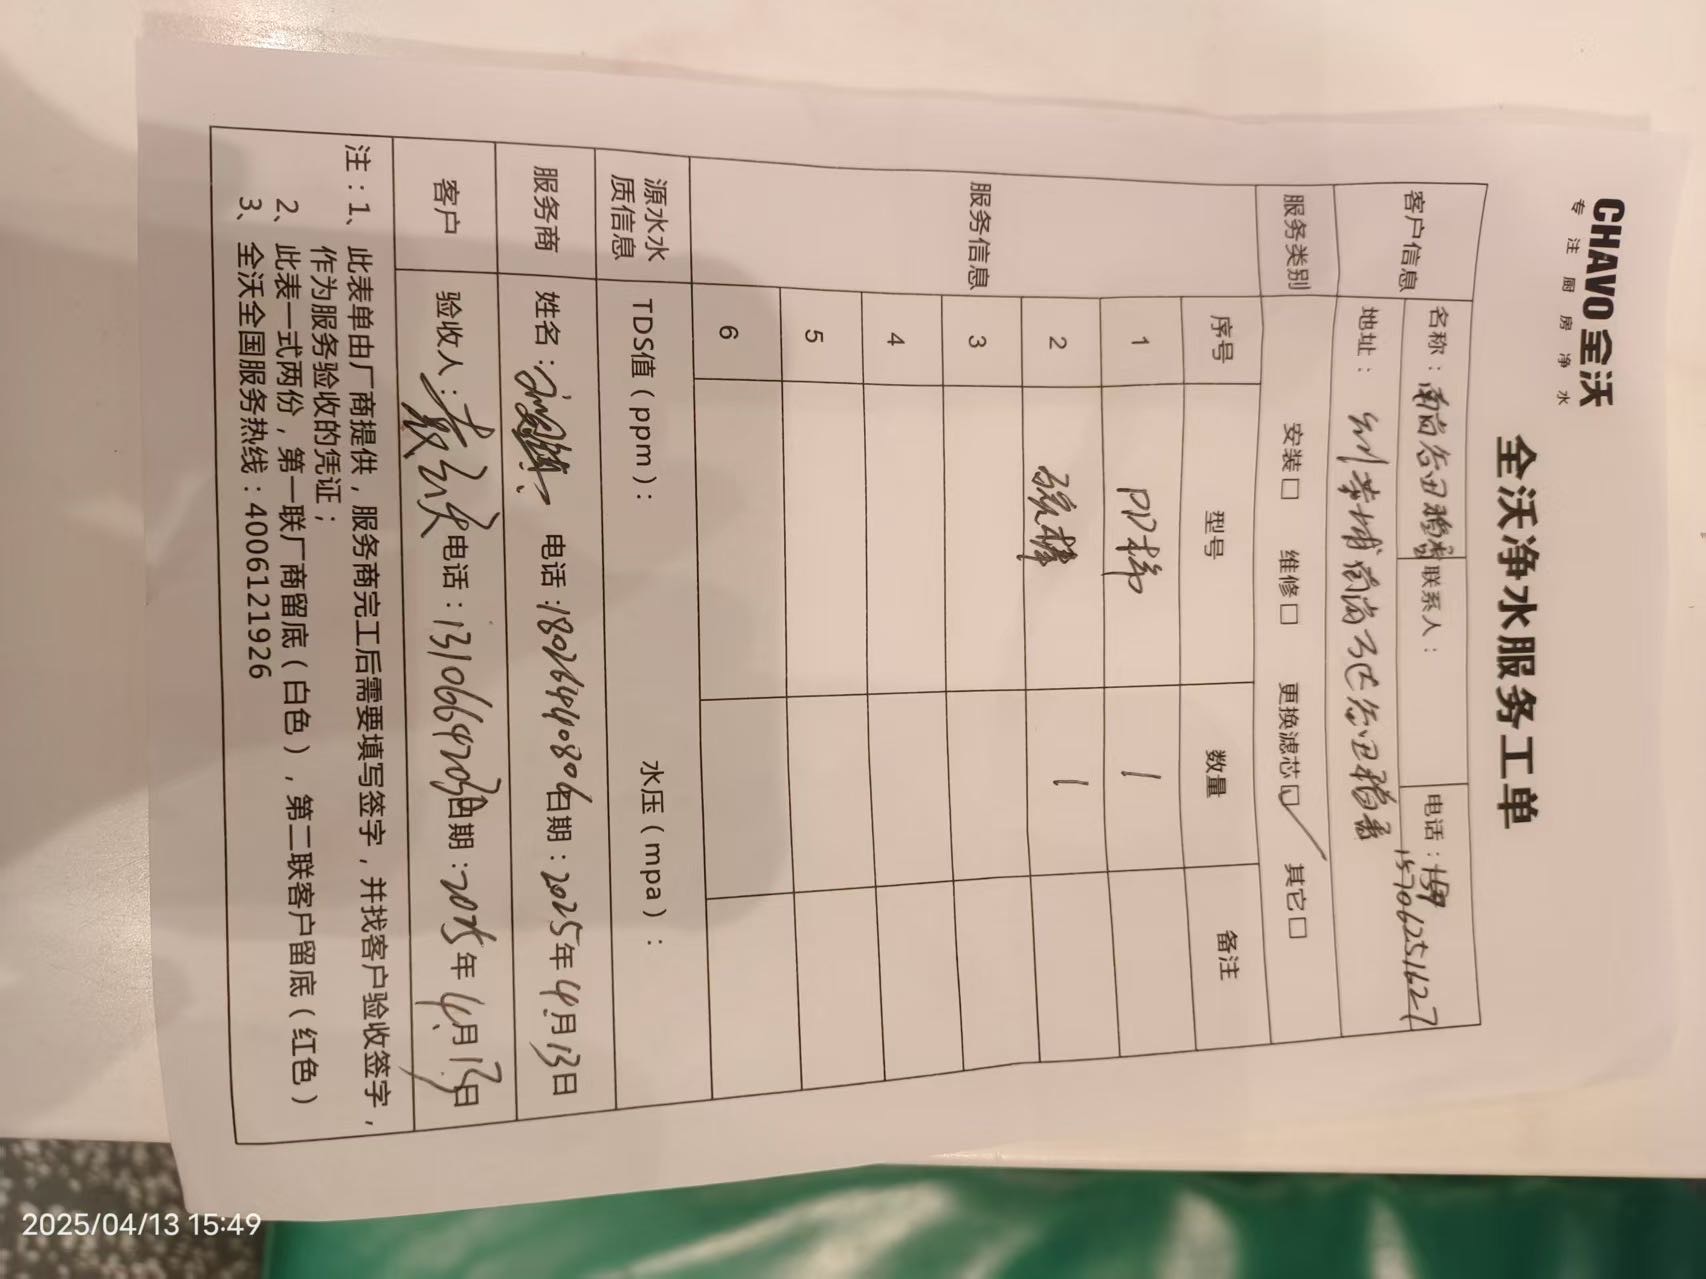 CHAVO全沃
专注厨房净水
全沃净水服务工单
客户信息 名称: 联系人: 电话: 15706251627
地址:
服务类别 安装□ 维修□ 更换滤芯☑ 其它□
服务信息 序号 型号 数量 备注
1 PP棉 1
2 碳棒 1
3
4
5
6
源水水质信息 TDS值(ppm): 水压(mpa):
服务商 姓名: 电话:18026440806 日期:2025年4月13日
客户 验收人: 电话:13106647203 日期:2025年4月13日
注:1、此表单由厂商提供,服务商完工后需要填写签字,并找客户验收签字,
作为服务验收的凭证;
2、此表一式两份,第一联厂商留底(白色),第二联客户留底(红色)
3、全沃全国服务热线:4006121926
2025/04/13 15:49